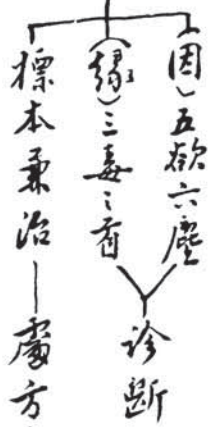 (因)五欲六塵
(緣)三毒之
診斷
標本兼治—處方